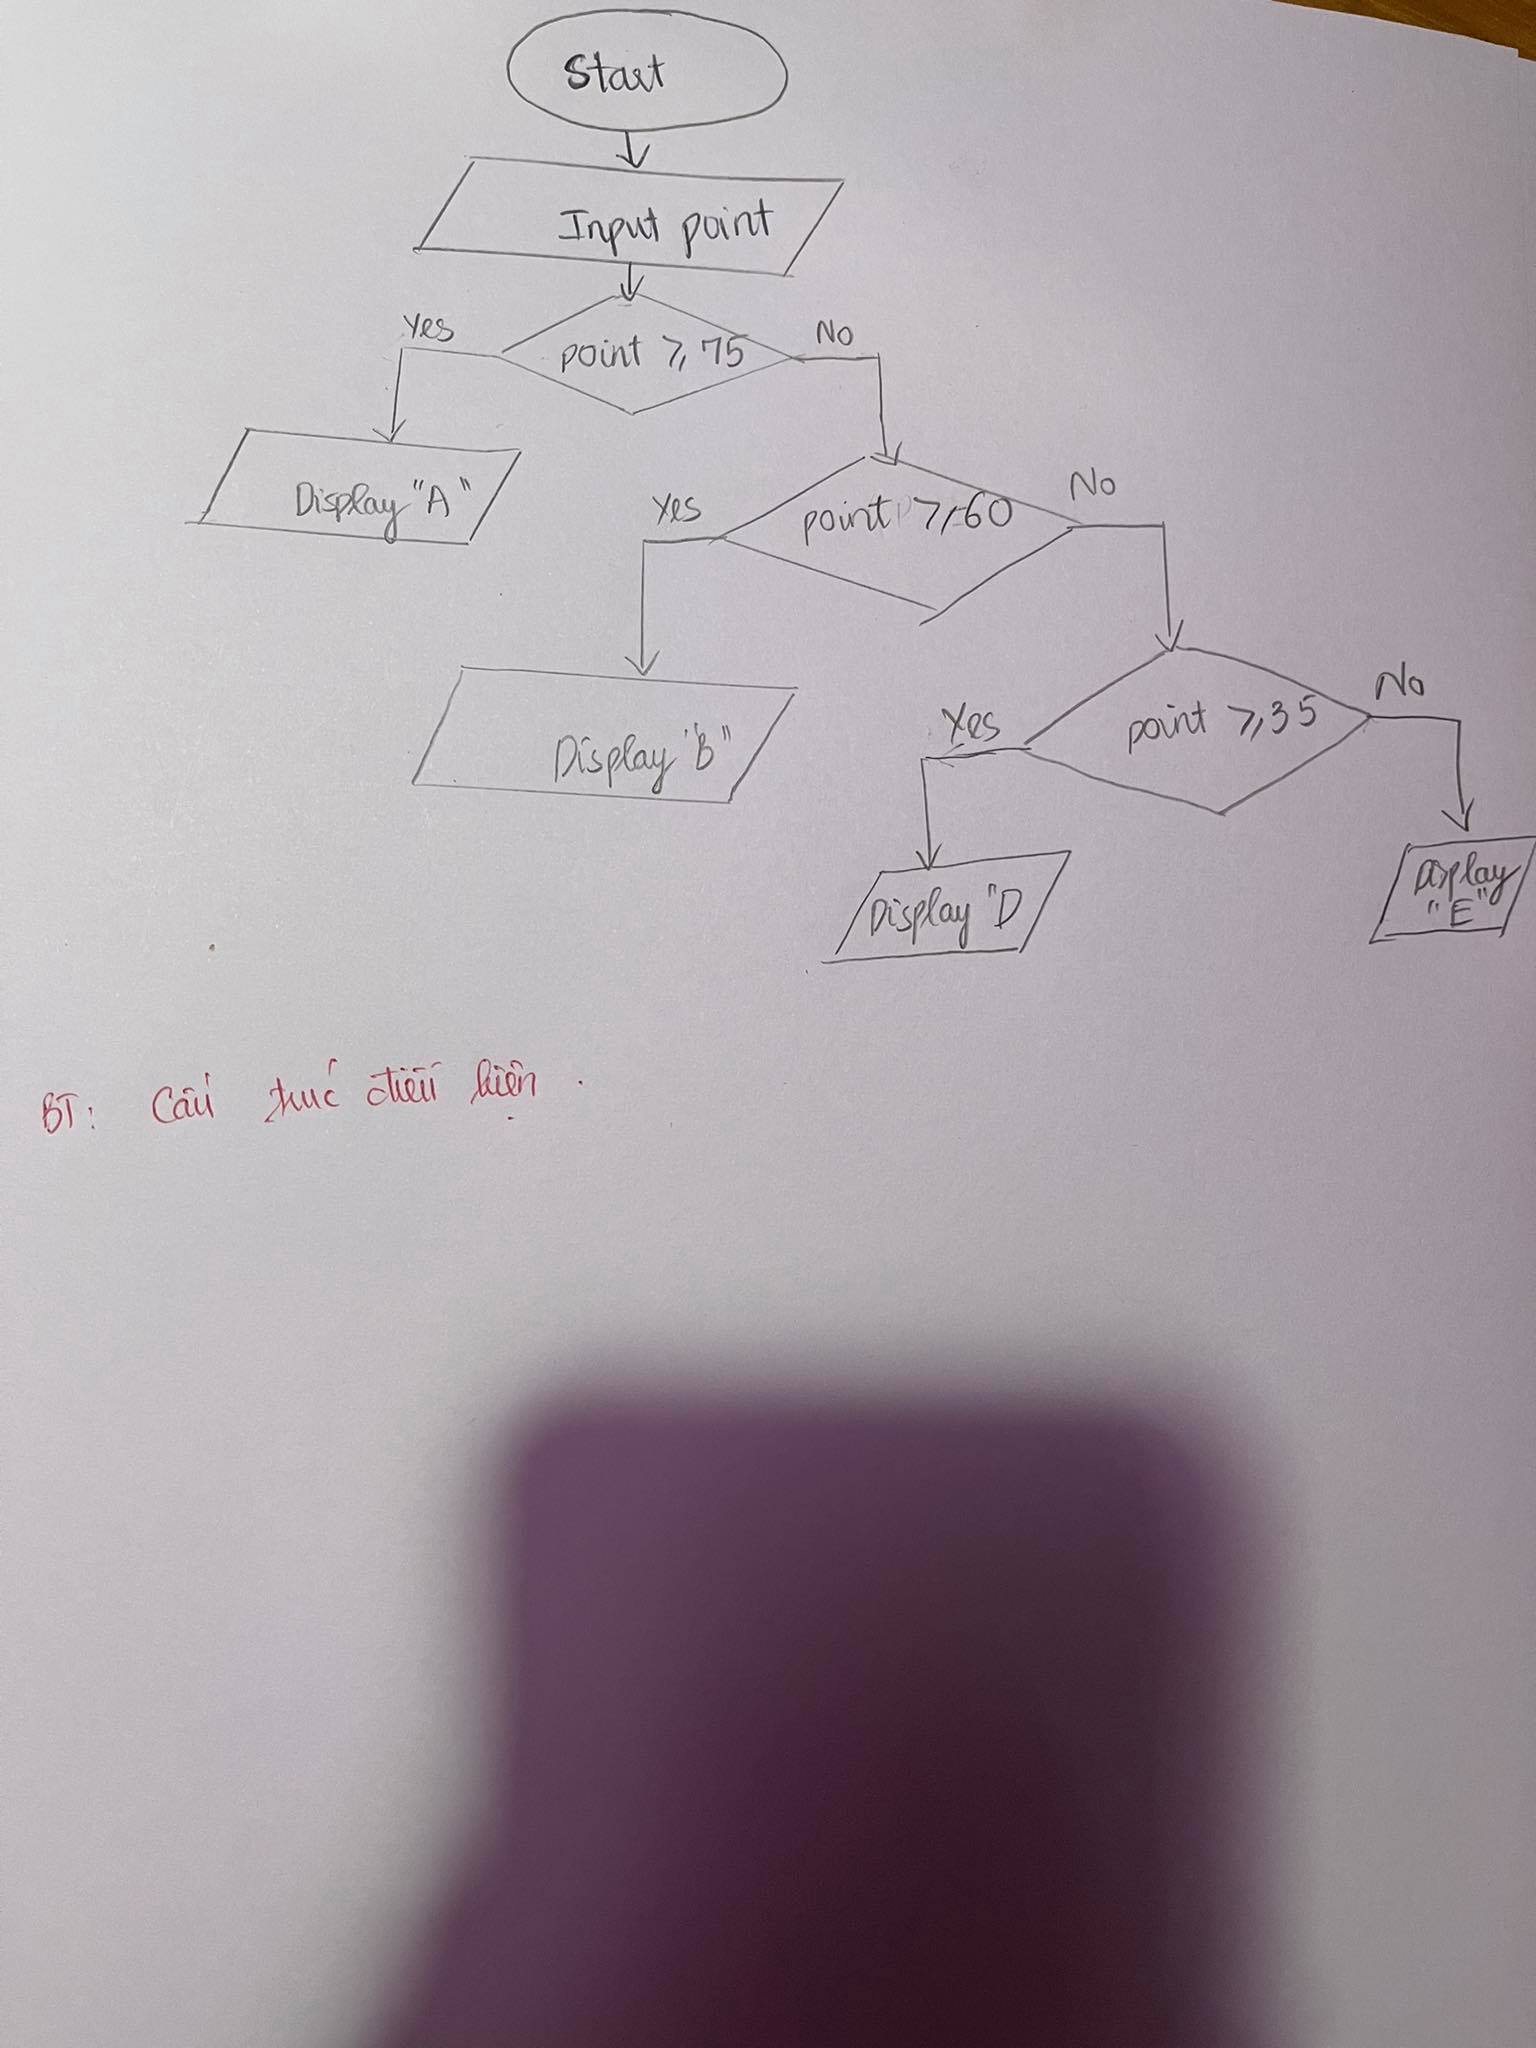 Start
Input point
Yes
point ≥ 75
No
Display "A"
Yes
point ≥ 60
No
Display "B"
Yes
point ≥ 35
No
Display "D
Display
"E"
BT: Cấu trúc điều kiện.